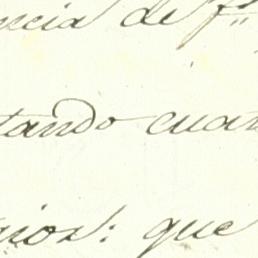 ncia de f
tando cuan
rios: que